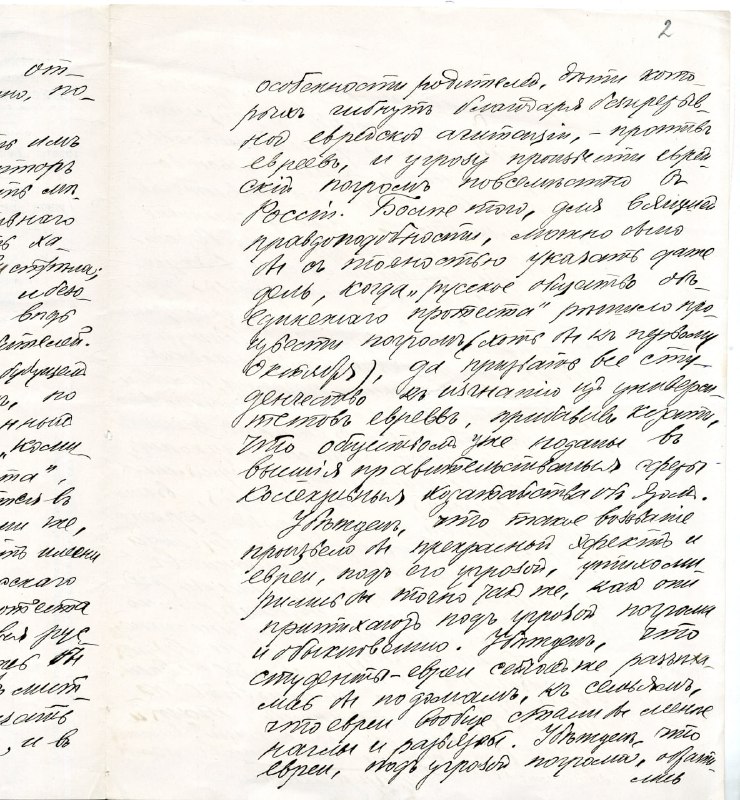 2
от-
но, по-
ть имъ
внаго
ха-
видѣ
будущемъ
, по
нный
та",
тся въ
же,
имени
скаго
рус-
бы
лист
, и въ
особенности родителей, дѣти кото-
рыхъ гибнутъ благодаря безпрерыв-
ной еврейской агитаціи, - противъ
евреевъ, и угрозу произвести еврей-
скій погромъ повсемѣстно въ
Россіи. Болѣе того, для вящшей
правдоподобности, можно было
бы съ точностью указать даже
день, когда „русское общество объ-
единеннаго протеста" рѣшило про-
извести погромъ (хоть бы къ первому
Октября), да призвать все сту-
денчество къ изгнанію изъ универси-
тетовъ евреевъ, прибавивъ кстати,
что обществомъ уже поданы въ
высшія правительственныя
ходатайства объ этомъ.
Убѣжденъ, что такое воззваніе
произвело бы прекрасный эффектъ и
евреи, подъ его угрозой, утихоми-
рились бы точно такъ же, какъ они
притихаютъ подъ угрозой погрома
и обыкновенно. Убѣжденъ, что
студенты-евреи сейчасъ же
бы по домамъ, къ семьямъ,
что евреи вообще стали бы менѣе
наглы и развязны. Убѣжденъ, что
евреи, подъ угрозой погрома, обрати-
лись